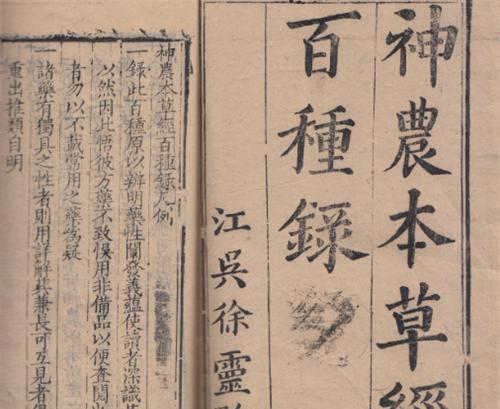 神農本草經
百種錄
江吳徐靈
神農本草經百種錄凡例
一錄此百種原以辨明藥性闡發義蘊使讀者深識其
以然因此悟彼方藥不致悞用非備品以便查閱
者勿以不載常用之藥為疑
一諸藥有獨具之性者則用詳解其兼長可互見者
重出推類自明